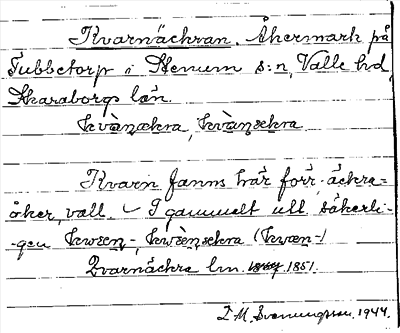 Kvarnäckran. Åkermark på
Tubbetorp i Stenum s:n, Valle hd,
Skaraborgs län.
kvànækra, kvànsekra
Kvarn fanns här förr. äckra =
åker, vall. – I gammalt utt. säkerli-
gen kwæn-, kwænsekra (kwæn-)
Qvarnäckre lm. 1851.
D. M. Svenungsson. 1944.